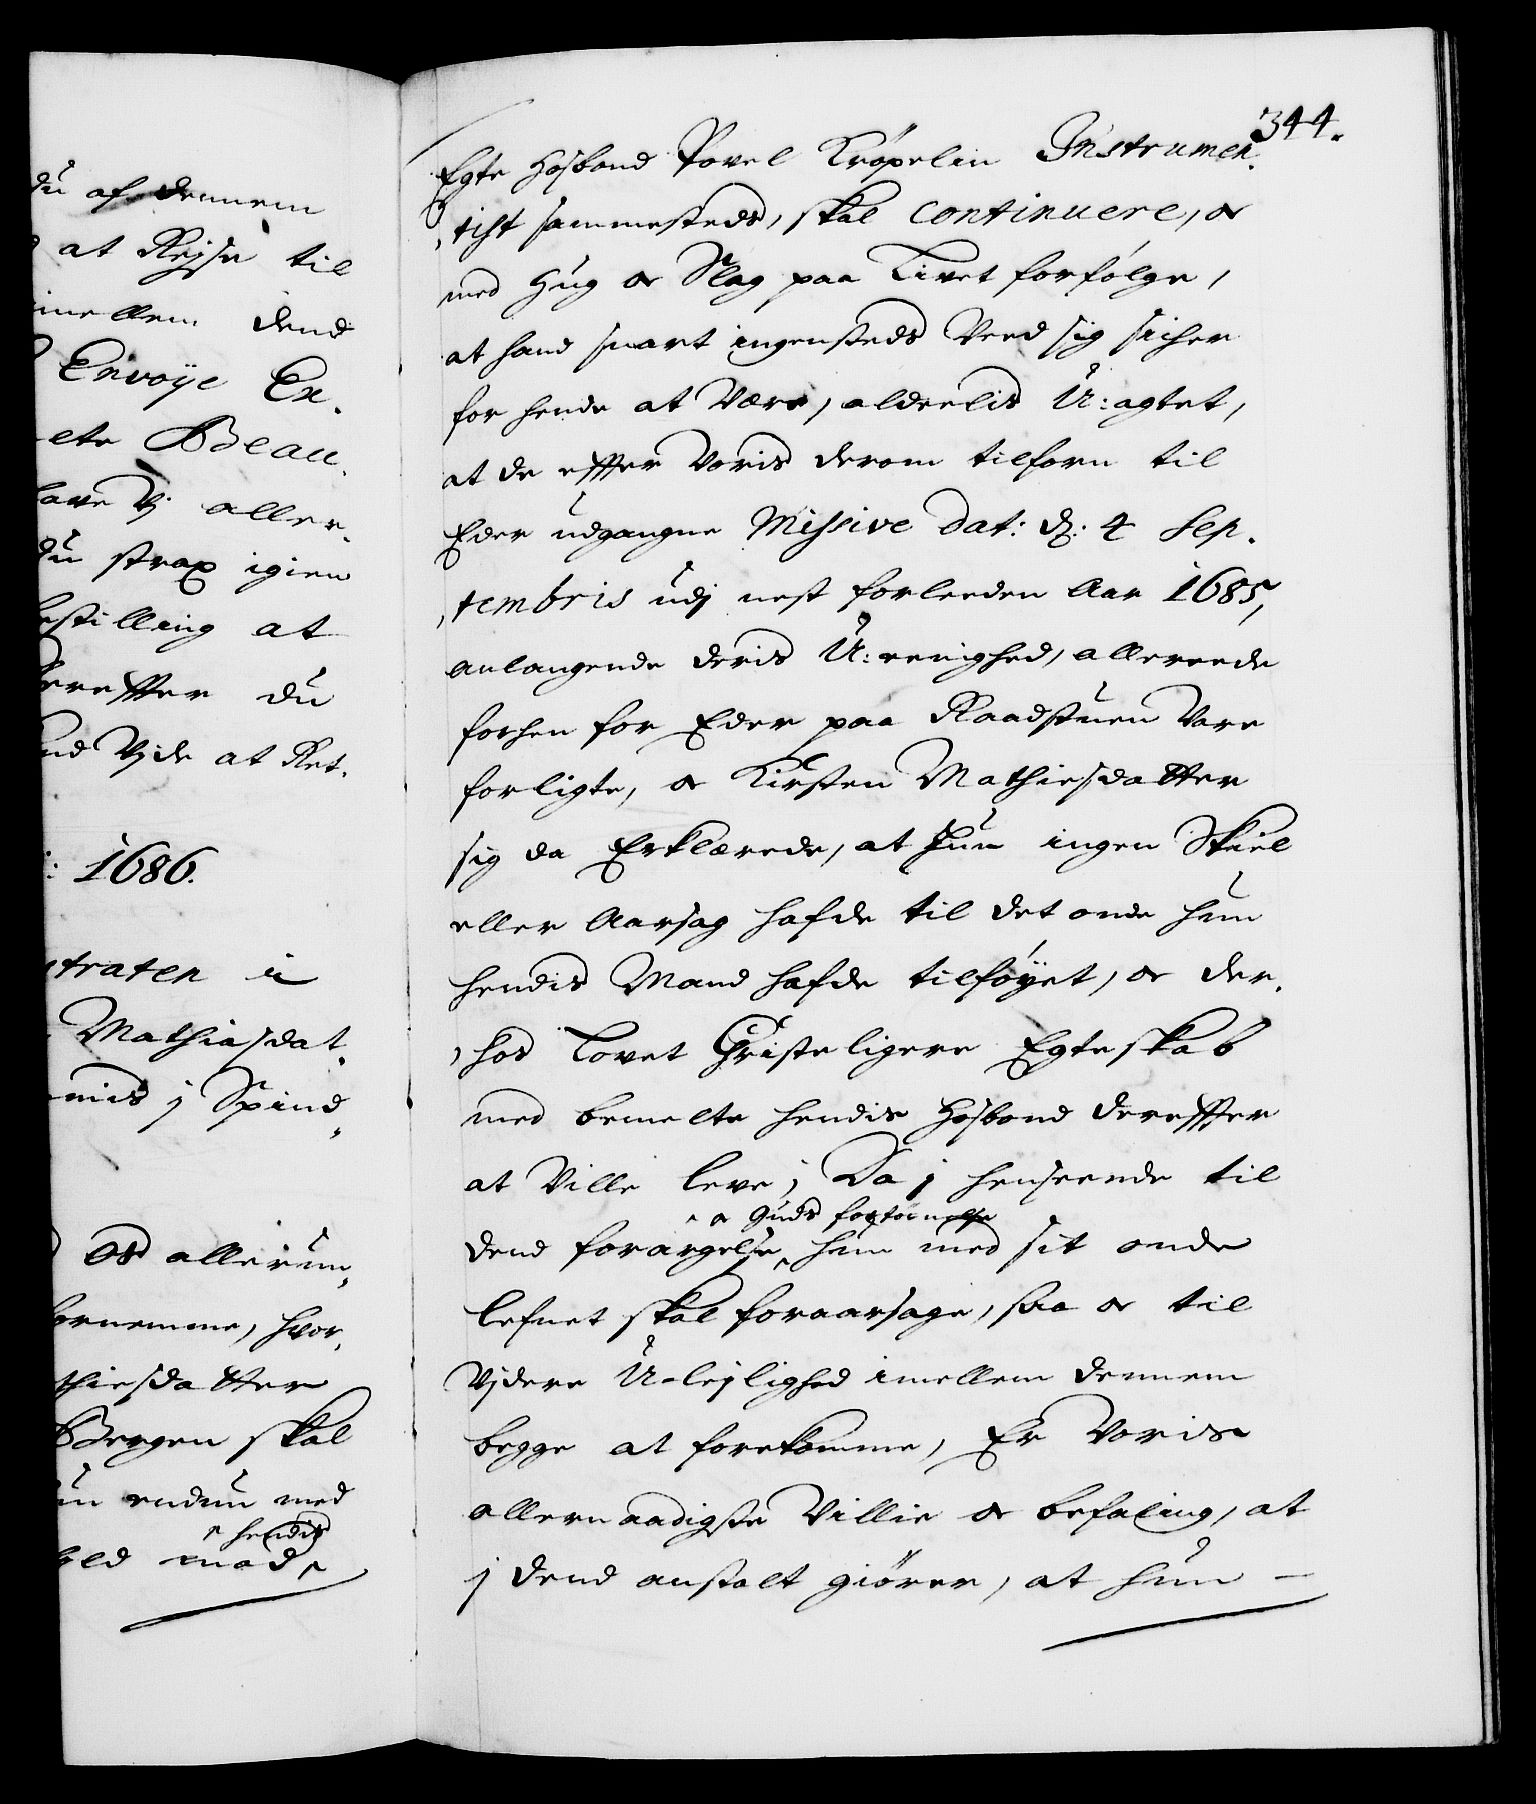 du af dennem
at Rejse til
imellem dend
Envoÿe Ex.
ete Beau.
have Vj aller.
du strax igien
bestilling at
hereffter du
Vjde at Ret.
1686.
straten i
Mathiasdat.
j Spind.
Os allerun.
fornemme, hvor.
thiesdatter
Bergen skal
endnu med
hendis
mod
344.
Egte Hosbond Povel Kröpelin Instrumen.
tist sammesteds, skal continuere, oc
med Hug oc Slag paa Livet forfølge,
at hand snart ingensteds Veed sig sicher
for hende at Være, aldeelis U:agtet,
at de effter Voris derom tilforn til
Eder udgangne Missive dat: d: 4 Sep.
tembris udj nest forleeden Aar 1685,
anlangende deris U:eenighed, allereede
forhen for Eder paa Raadstuen Vare
forligte, oc Kirsten Mathiesdatter
sig da Erklærede, at hun ingen Skiel
eller Aarsag hafde til det onde hun
hendis Mand hafde tilföÿet, oc der.
hos lovet Christeligere Egteskab
med bemelte hendis Hosbond dereffter
at Ville leve; Da j henseende til
oc Guds fortørnelse
dend forargelse hun med sit onde
lefnet skal foraarsage, saa oc til
Vjdere U-lejlighed imellem dennem
begge at forekomme, Er Voris
allernaadigste Villie oc befaling, at
j dend anstalt giörer, at hun